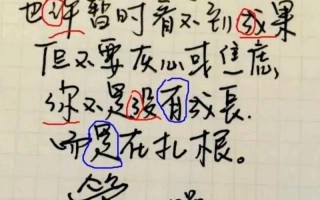 也许暂时看不到成果
但不要灰心或焦虑,
你不是没有成長.
而是在扎根。